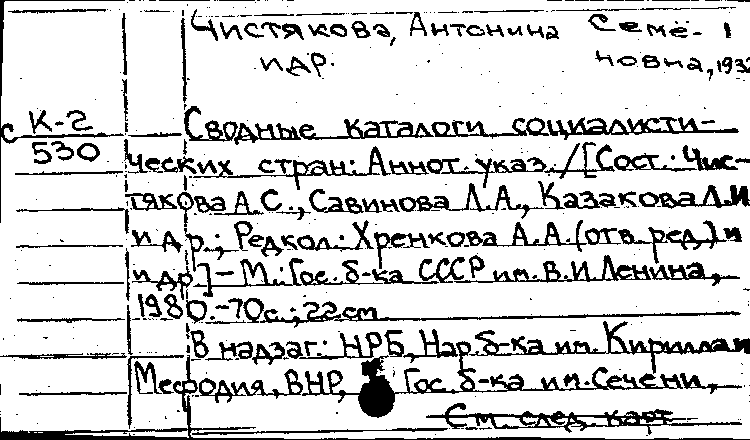 Чистякова, Антонина Семё- 1
и др. новна, 1932
с К-2 Сводные каталоги социалисти-
530 ческих стран: Аннот. указ. / [Сост.: Чис-
тякова А.С., Савинова Л.А., Казакова Л.И
и др.; Редкол.: Хренкова А.А. (отв. ред.) и
и др.] – М.: Гос. б-ка СССР им. В.И Ленина,
1980. – 70 с.; 22 см
В надзаг.: НРБ, Нар. б-ка им. Кирилла и
Мефодия, ВНР, Гос. б-ка им. Сечени,
См. след. карт